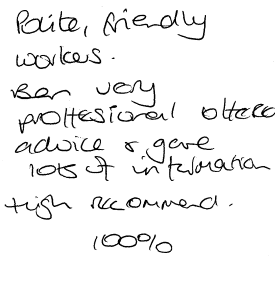 Polite, friendly
workers.
Ben very
proffessional offered
advice & gave
lots of information
High recommend.
100%